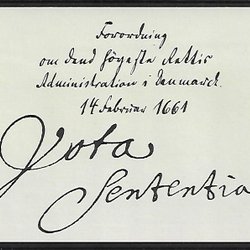 Forordning
om dend högeste Rettis
Administration i Danmarck.
14 Februar 1661
Vota
Sententia